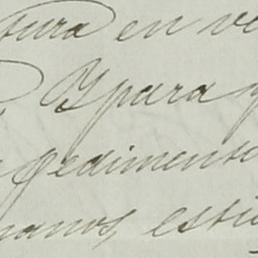 tura en ve
Y para q
pedimento
manos, estu